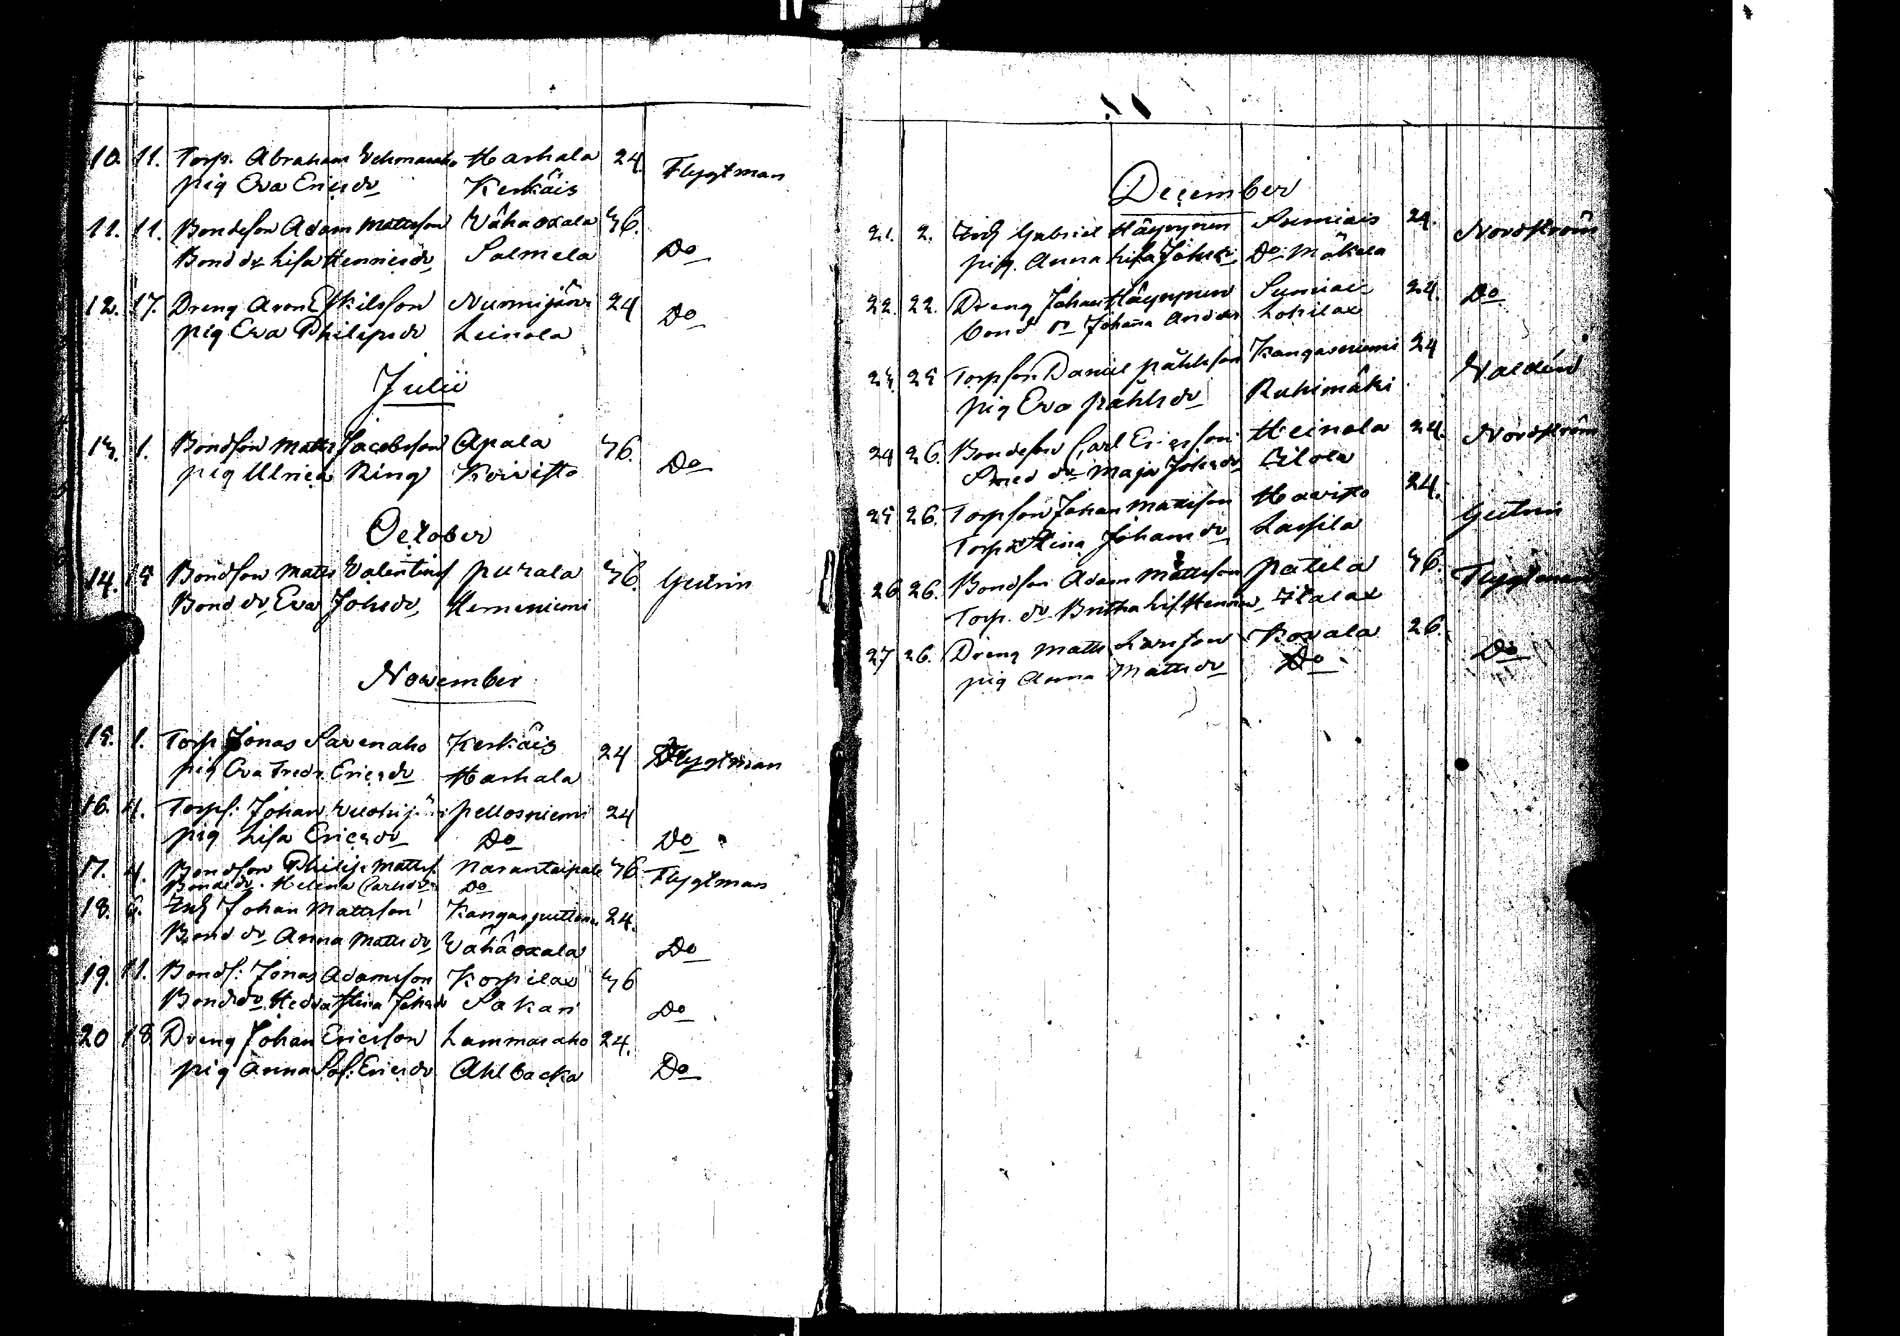 10. 11. Torp. Abraham Vehmasaho Harhala 24. Flygtman
pig Eva Ericsdr Kerkäis
11. 11. Bondeson Adam Mattsson Wähäoxala 36.
Bond dr Lisa Henricsdr Salmela Do
12. 17. Dreng Aron Eskilsson Nurmijärvi 24 Do
pig Eva Philipsdr Leinola
Julii
13. 1. Bondson Matts Jacobsson Apala 36.
pig Ulrica Ring Koivisto Do
October
14. Bondson Matts Valentins Purala 36. Gutrin
Bond dr Eva Johsdr Hemeniemi
November
15. 1. Torp Jonas Savenaho Kerkäis 24 Flygtman
pig Eva Fredr. Ericsdr Harhala
16. 4. Torps: Johan Pellosniemi 24
pig Lisa Ericsdr Do Do
17. 4. Bondson Philip Mattss Narantaipale 36 Flygtman
Bond dr. Helena Carlsdr Do
18. 6. Enk Johan Mattsson 24.
Bond dr Anna Mattsdr Wähäoxala Do
19. 11. Bonds: Jonas Adamsson Korpilax 36
Bondsdr Hedda Stina Johsdr Sakari Do
20 18 Dreng Johan Ericsson Lammasaho 24.
pig Anna Sof: Ericsdr Ahlbacka Do
December
21. 2. Enk Gabriel Häyrynen Sumiais 24. Nordström
pig. Anna Lisa Johsdr Do Mäkela
22. 22. Dreng Johan Häyrynen Sumiais 24. Do
bond dr Johana Andersdr
23. 25 Torpson Daniel Påhlsson Kangasniemi 24 Nordlund
pig Eva Påhlsdr Ruhimäki
24 26. Bondeson Carl Ericsson Heinola 24. Nordström
Smed dr Maja Johsdr
25 26. Torpson Johan Mattsson Havisto 24. Gutrin
Torp dr Stina Johansdr Lassila
26 26. Bondson Adam Mattsson Patila 36. Flygtman
Torp. dr Britha Lis. Italax
27 26. Dreng Matts Larsson Kovala 26. Do
pig Anna Mattsdr Do